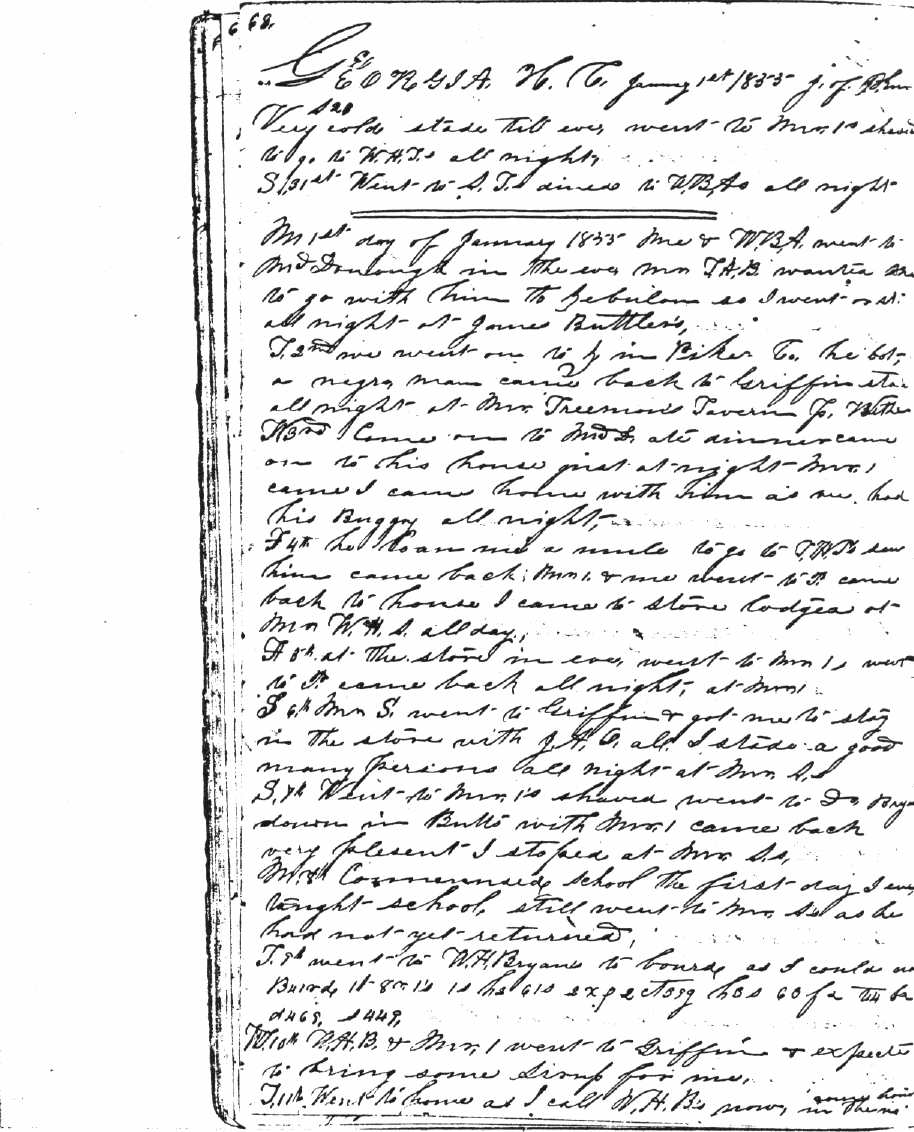 68.
GEORGIA. H. C. January 1st 1855 J. of
S 20
Very cold stade till eve, went to Mr. 1s
to go to W.H.T.s all night,
S. 31st Went to S. T.s dined to W.B.A.s all night
M 1st day of January 1855 Me & W.B.A. went to
McDonough in the eve, Mr. T.A.B. wanted
to go with him to Zebulon so I went
all night at James Buttler's,
T. 2nd we went on to Z in Pike Co. he bot,
a negro man came back to Griffin
all night at Mr. Freemon's Tavern
W 3rd Come on to McD. ate dinner came
on to his house just at night Mr. 1
came I came home with him as we had
his Buggy all night,
he loan me a mule to go to saw
him came back; Mr. 1. & me went to P. came
back to house I came to store lodged at
Mr. W. H. S. all day,
at the store in eve, went to Mr. 1s went
to P. came back all night, at Mr. 1
S 6th Mr. S. went to Griffin & got me to stay
in the store with all I stade a good
many persons all night at Mr. S.s
S. 7th Went to Mr. 1's shaved went to
down in Butts with Mr. 1 came back
very plesent I stoped at Mr. S.s,
M. 8th Commensed school the first day I ever
taught school, still went to Mr. S.s as he
had not yet returned,
T. 9th went to W.H.Bryans to bourd, as I could
W. 10th W.H.B. & Mr. 1 went to Griffin & expects
to bring some for me,
T. 11th Went to home as I call W.H.B's now,